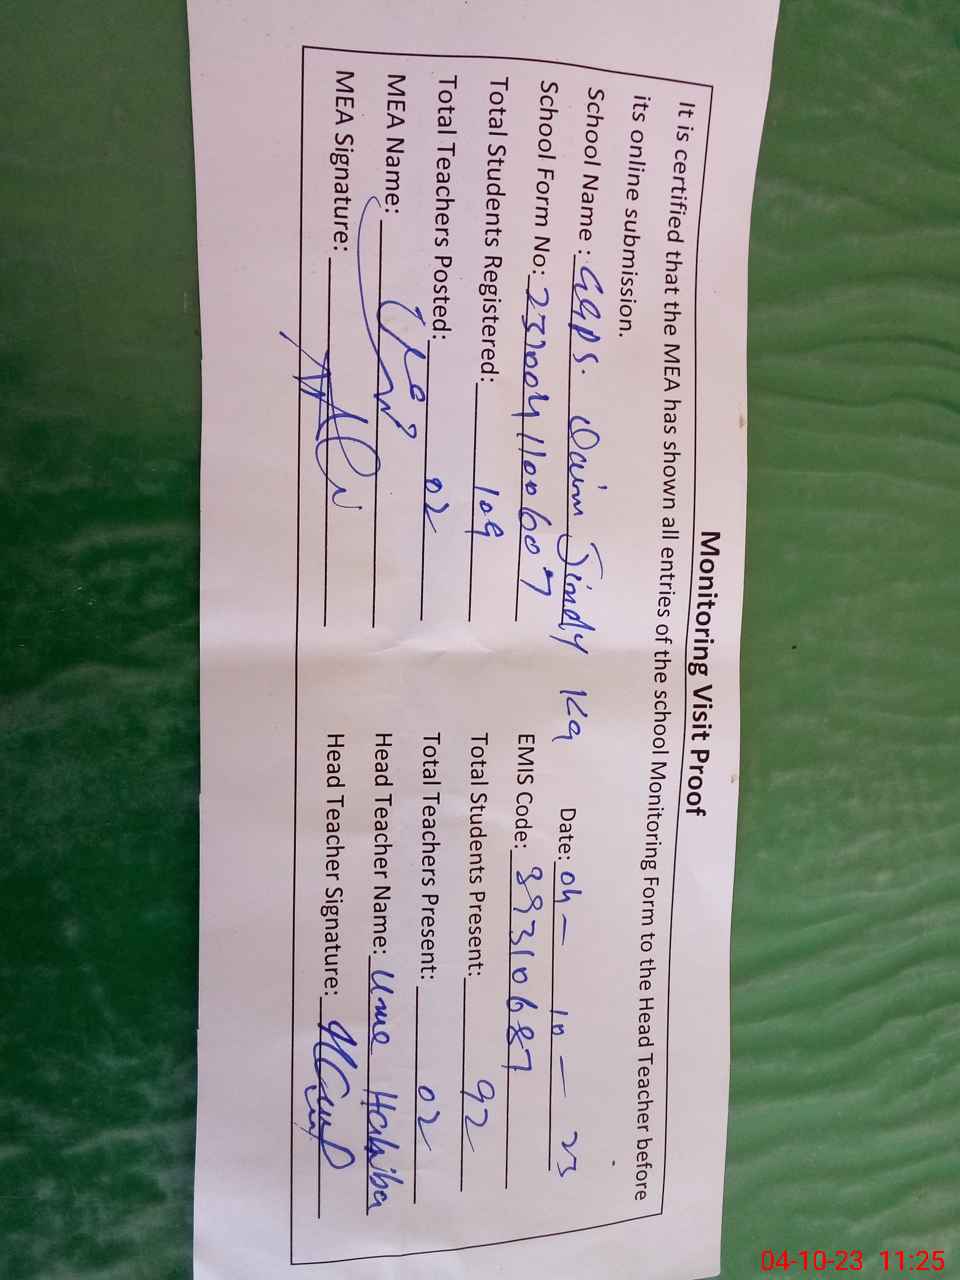 Monitoring Visit Proof
It is certified that the MEA has shown all entries of the school Monitoring Form to the Head Teacher before
its online submission.
School Name : GGPS. Daim Jindy Ka Date: 04 – 10 – 23
School Form No: EMIS Code: 39310687
Total Students Registered: 109 Total Students Present: 92
Total Teachers Posted: 02 Total Teachers Present: 02
MEA Name: Head Teacher Name: Ume Habiba
MEA Signature: Head Teacher Signature:
04-10-23 11:25